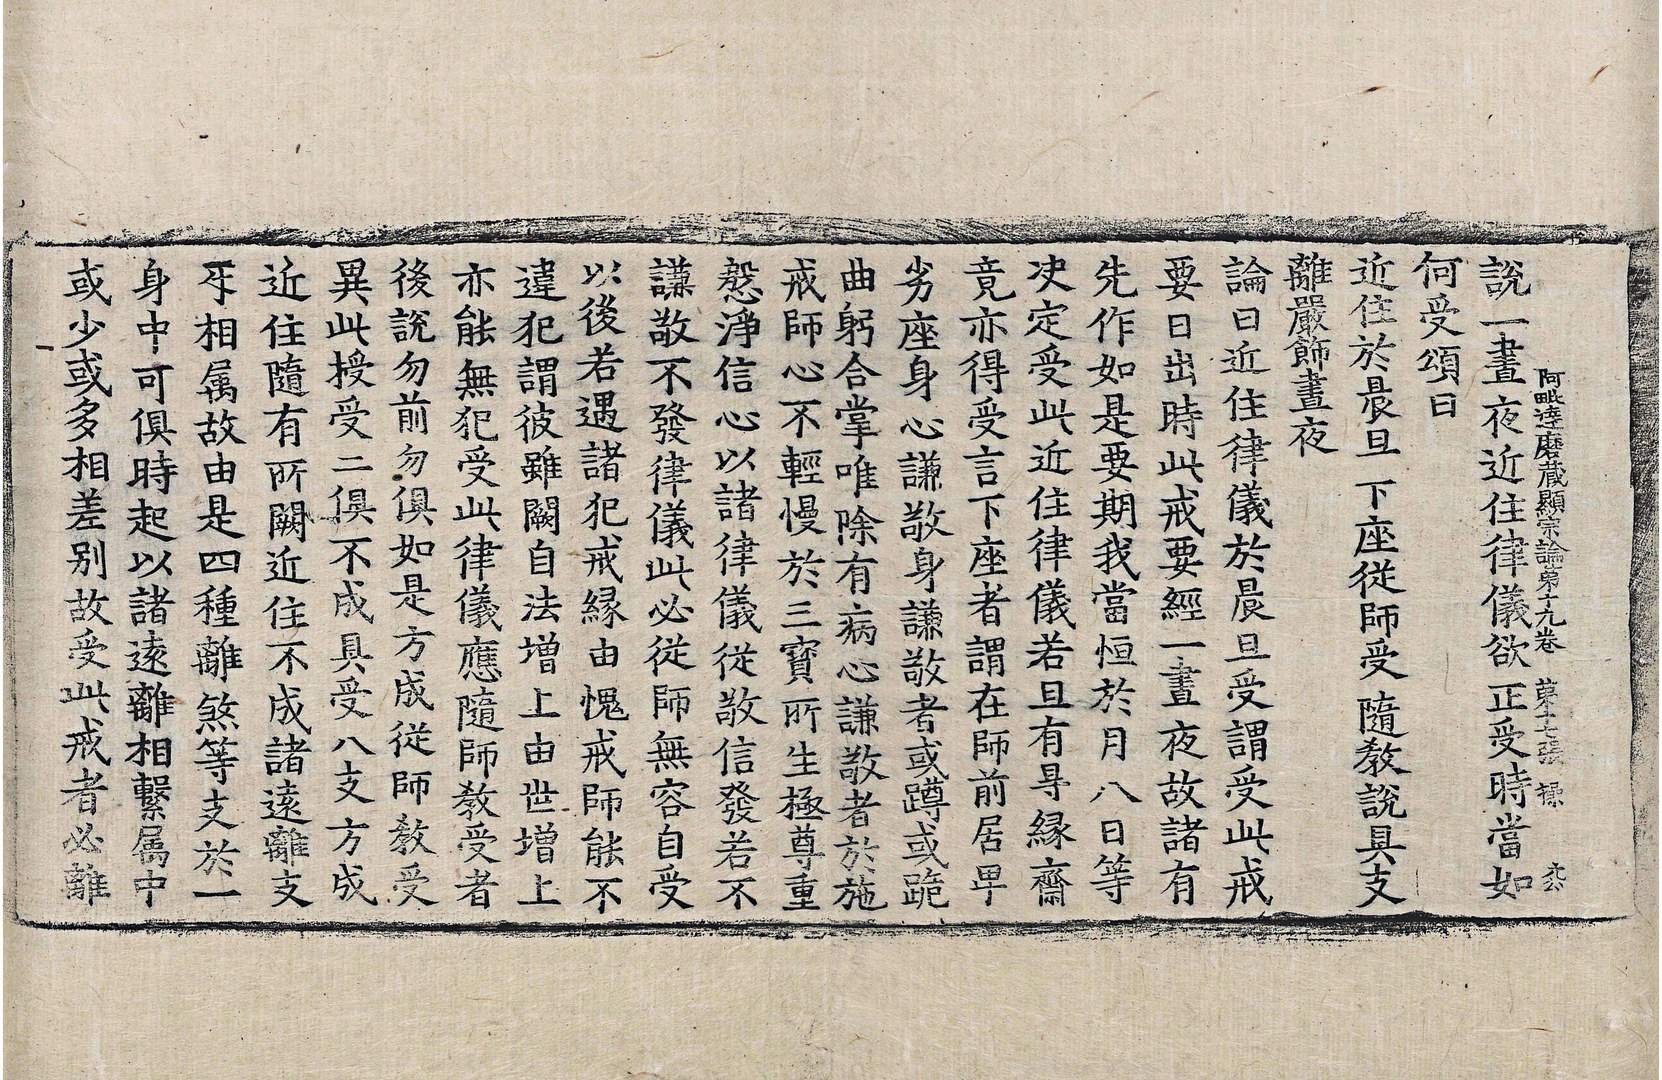 阿毗達磨藏顯宗論第十九卷 第十七張 操
說一晝夜近住律儀欲正受時當如
何受頌曰
近住於晨旦 下座從師受 隨教說具支
離嚴飾晝夜
論曰近住律儀於晨旦受謂受此戒
要日出時此戒要經一晝夜故諸有
先作如是要期我當恒於月八日等
决定受此近住律儀若旦有㝵緣齋
竟亦得受言下座者謂在師前居卑
劣座身心謙敬身謙敬者或蹲或跪
曲躬合掌唯除有病心謙敬者於施
戒師心不輕慢於三寶所生極尊重
慇淨信心以諸律儀從敬信發若不
謙敬不發律儀此必從師無容自受
以後若遇諸犯戒緣由愧戒師能不
違犯謂彼雖闕自法增上由世增上
亦能無犯受此律儀應隨師教受者
後說勿前勿俱如是方成從師教受
異此授受二俱不成具受八支方成
近住隨有所闕近住不成諸遠離支
互相属故由是四種離煞等支於一
身中可俱時起以諸遠離相繫属中
或少或多相差別故受此戒者必離